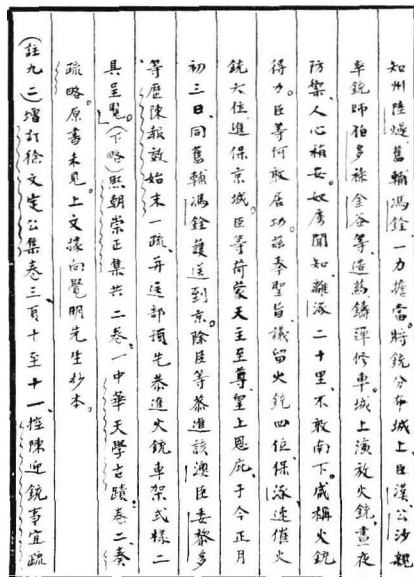 知州陸燧、舊輔馮銓、一力擔當。將銃分布城上、臣漢、公沙親
率銃師伯多祿、金答等、造葯鑄彈修車、城上演放火銃、晝夜
防禦、人心稍安。奴虜聞知、離涿二十里、不敢南下。咸稱火銃
得力。臣等何敢居功。茲奉聖旨議留火銃四位、保涿速催火
銃六位、進保京城。臣等荷蒙天主至尊皇上恩庇、于今正月
初三日、同舊輔馮銓護送到京。除臣等恭進該澳臣委黎多
等歷陳報效始末一疏、并送部預先恭進火銃車架式樣二
具呈覧。(下略)熙朝崇正集共二卷、一中華天學古蹟卷二、奏
疏略。原書未見。上文據向覺明先生抄本。
(註九二)增訂徐文定公集卷三頁十至十一、控陳迎銃事宜疏